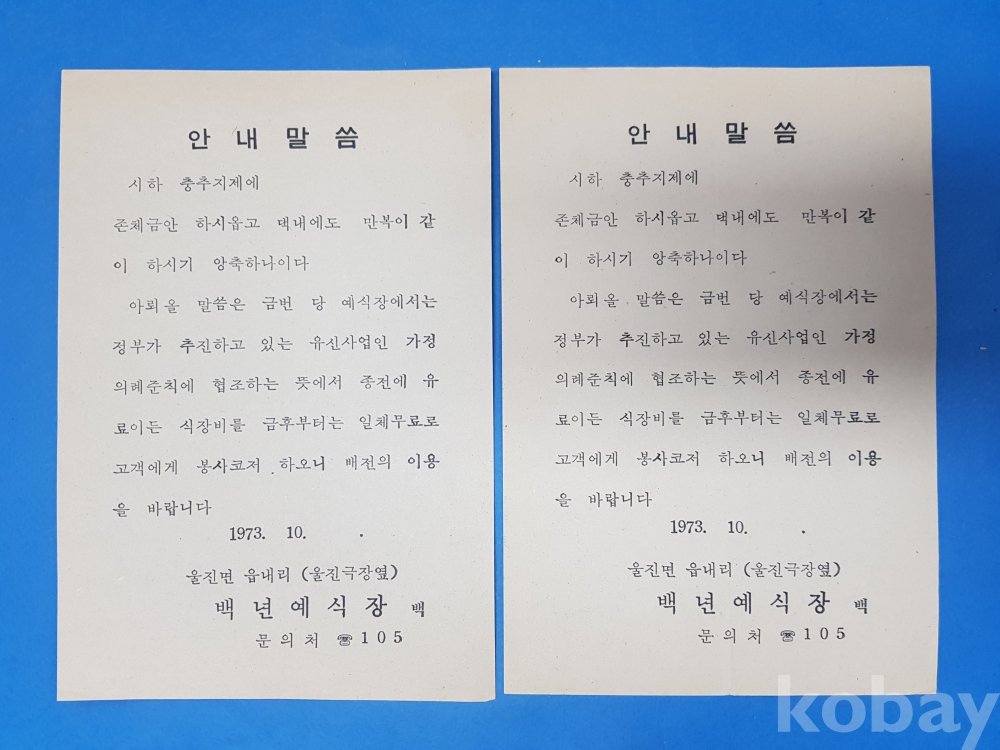 안내말씀
시하 충추지제에
존체금안 하시옵고 댁내에도 만복이 같
이 하시기 앙축하나이다
아뢰올 말씀은 금번 당 예식장에서는
정부가 추진하고 있는 유신사업인 가정
의례준칙에 협조하는 뜻에서 종전에 유
료이든 식장비를 금후부터는 일체무료로
고객에게 봉사코저 하오니 배전의 이용
을 바랍니다
1973. 10. .
울진면 읍내리 (울진극장옆)
백년예식장 백
문의처 ☎105
안내말씀
시하 충추지제에
존체금안 하시옵고 댁내에도 만복이 같
이 하시기 앙축하나이다
아뢰올 말씀은 금번 당 예식장에서는
정부가 추진하고 있는 유신사업인 가정
의례준칙에 협조하는 뜻에서 종전에 유
료이든 식장비를 금후부터는 일체무료로
고객에게 봉사코저 하오니 배전의 이용
을 바랍니다
1973. 10. .
울진면 읍내리 (울진극장옆)
백년예식장 백
문의처 ☎105
kobay